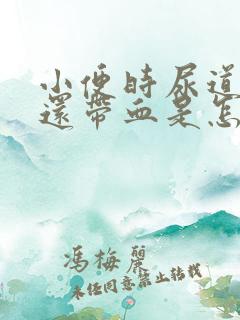 小便時尿道
還帶血是怎
馮梅麗
未经同意禁止转载